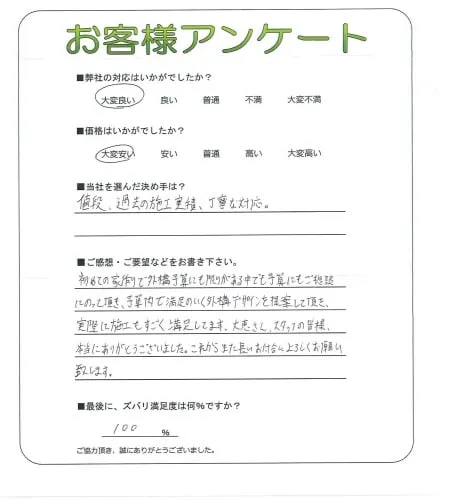 お客様アンケート
■弊社の対応はいかがでしたか?
大変良い 良い 普通 不満 大変不満
■価格はいかがでしたか?
大変安い 安い 普通 高い 大変高い
■当社を選んだ決め手は?
値段、過去の施工実績、丁寧な対応。
■ご感想・ご要望などをお書き下さい。
初めての家作りで外構予算にも限りがある中でも予算にもご相談
にのって頂き、予算内で満足のいく外構デザインを提案して頂き、
実際に施工もすごく満足してます。大恵さん、スタッフの皆様、
本当にありがとうございました。これからまた長いお付合いよろしくお願い
致します。
■最後に、ズバリ満足度は何%ですか?
100 %
ご協力頂き、誠にありがとうございました。